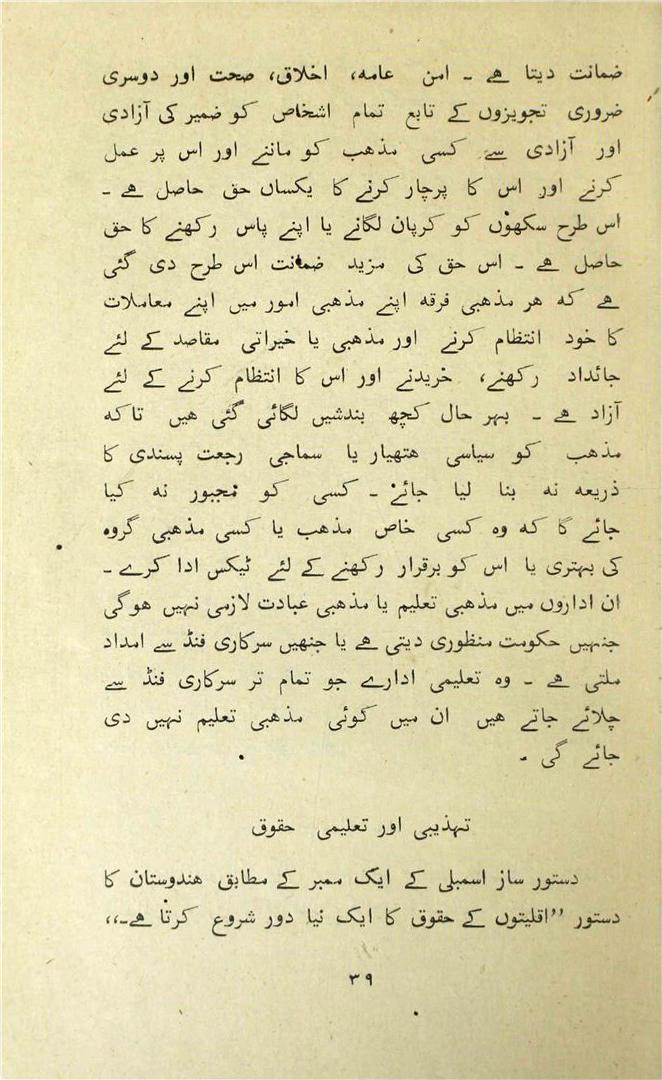 ضمانت دیتا ہے ۔ امن عامہ، اخلاق، صحت اور دوسری
ضروری تجویزوں کے تابع تمام اشخاص کو ضمیر کی آزادی
اور آزادی سے کسی مذہب کو ماننے اور اس پر عمل
کرنے اور اس کا پرچار کرنے کا یکساں حق حاصل ہے ۔
اس طرح سکھوں کو کرپان لگانے یا اپنے پاس رکھنے کا حق
حاصل ہے ۔ اس حق کی مزید ضمانت اس طرح دی گئی
ہے کہ ہر مذہبی فرقہ اپنے مذہبی امور میں اپنے معاملات
کا خود انتظام کرنے اور مذہبی یا خیراتی مقاصد کے لئے
جائداد رکھنے، خریدنے اور اس کا انتظام کرنے کے لئے
آزاد ہے ۔ بہر حال کچھ بندشیں لگائی گئی ہیں تاکہ
مذہب کو سیاسی ہتھیار یا سماجی رجعت پسندی کا
ذریعہ نہ بنا لیا جائے ۔ کسی کو مجبور نہ کیا
جائے گا کہ وہ کسی خاص مذہب یا کسی مذہبی گروہ
کی بہتری یا اس کو برقرار رکھنے کے لئے ٹیکس ادا کرے ۔
ان اداروں میں مذہبی تعلیم یا مذہبی عبادت لازمی نہیں ہوگی
جنہیں حکومت منظوری دیتی ہے یا جنھیں سرکاری فنڈ سے امداد
ملتی ہے ۔ وہ تعلیمی ادارے جو تمام تر سرکاری فنڈ سے
چلائے جاتے ہیں ان میں کوئی مذہبی تعلیم نہیں دی
جائے گی ۔
تہذیبی اور تعلیمی حقوق
دستور ساز اسمبلی کے ایک ممبر کے مطابق ہندوستان کا
دستور ’’اقلیتوں کے حقوق کا ایک نیا دور شروع کرتا ہے۔،،
۳۹